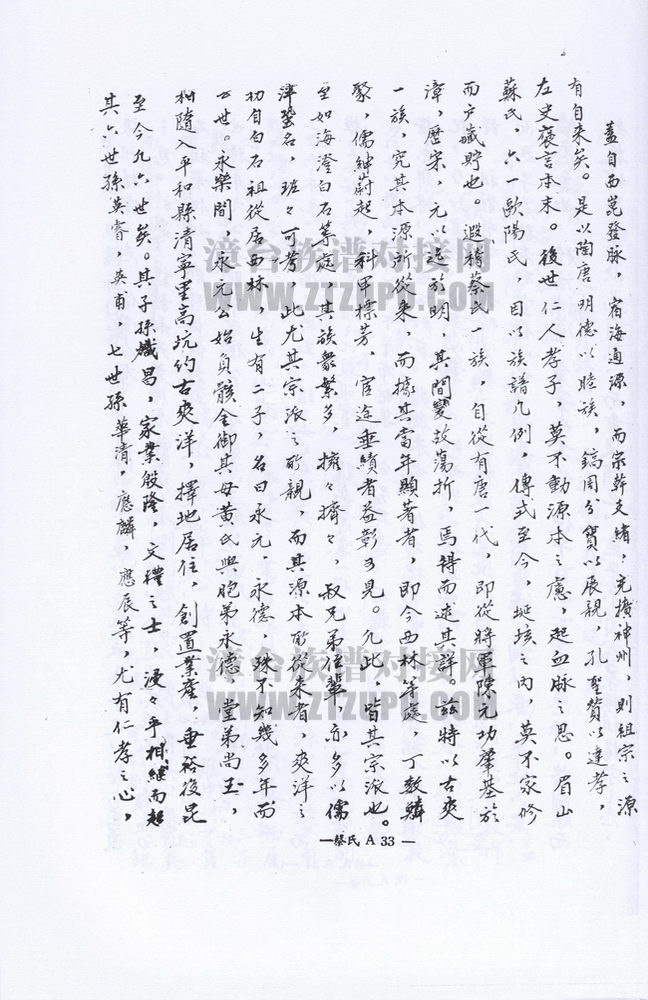 蓋自西崑發脉，宿海通源，而宗幹支緒，充擴神州，則祖宗之源
有自来矣。是以陶唐明德以睦族，鎬周分寶以展親，孔聖贊以達孝，
左史褒言本末。後世仁人孝子，莫不動源本之慮，起血脉之思。眉山
蘇氏，六一歐陽氏，因以族譜凡例，傳式至今，埏垓之内，莫不家修
而户藏貯也。遐稽蔡氏一族，自從有唐一代，即從將軍陳元功肇基於
漳，歷宋，元以迄於明，其間變故蕩折，焉得而述其詳。兹特以古爽
一族，究其本源所從来，而據其當年顯著者，即今西林等處，丁数麟
聚，儒紳蔚起，科甲標芳，宦途垂績者益彰可見。凡此，皆其宗派也。
至如海澄白石等處，其族衆繁多，擁々擠々，叔兄弟侄輩，亦多以儒
泮登名，班々可考，此尤其宗派之所親，而其源本所從来者，爽洋之
初自白石祖從居西林，生有二子，名曰永元，永德，殊不知幾多年而
世。永樂間，永元公始負骸全御其母黄氏與胞弟永德，堂弟尚玉，
相隨入平和縣清寧里高坑約古爽洋，擇地居住，創置業産，垂裕後昆
至今九六世矣。其子孫熾昌，家業殷隆，文禮之士，浸々乎相繼而起
其六世孫英睿，英甫，七世孫華清，應麟，應辰等，尤有仁孝之心，
—蔡氏 A 33 —
漳台族谱对接网
WWW.ZTZUPU.COM
漳台族谱对接网
WWW.ZTZUPU.COM